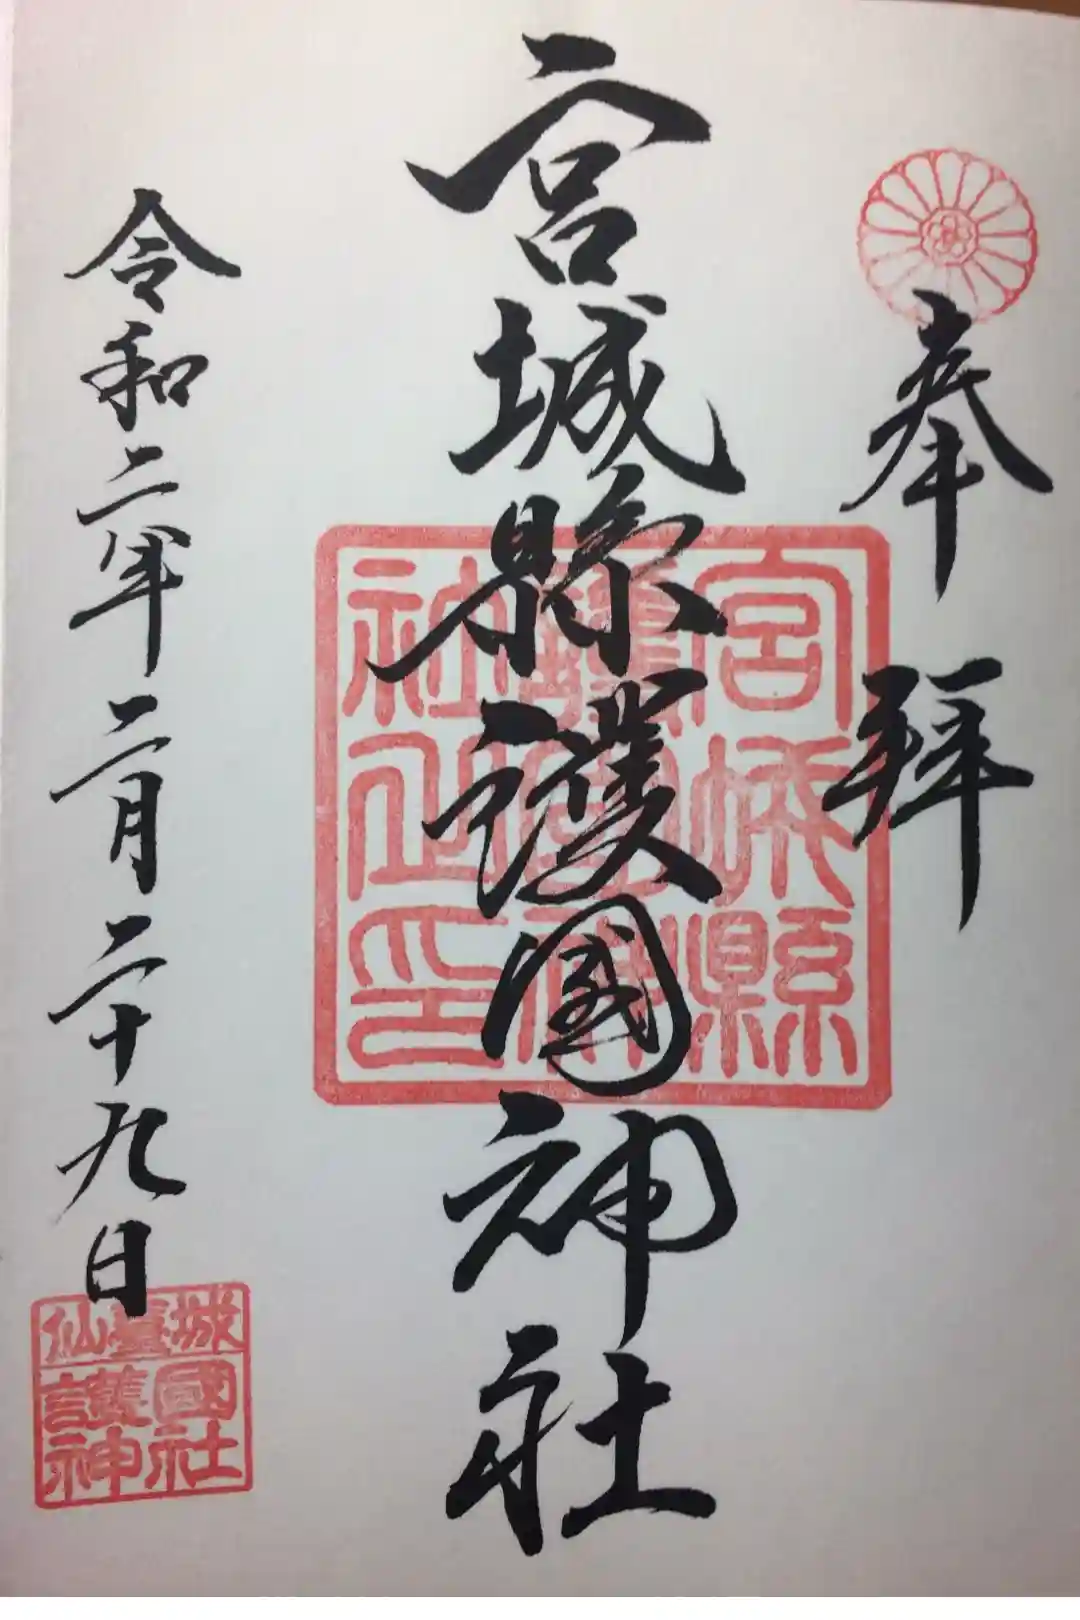 奉拝
宮城縣護國神社
令和二年二月二十九日
宮城縣
護國神
社之印
仙臺城
護國
神社